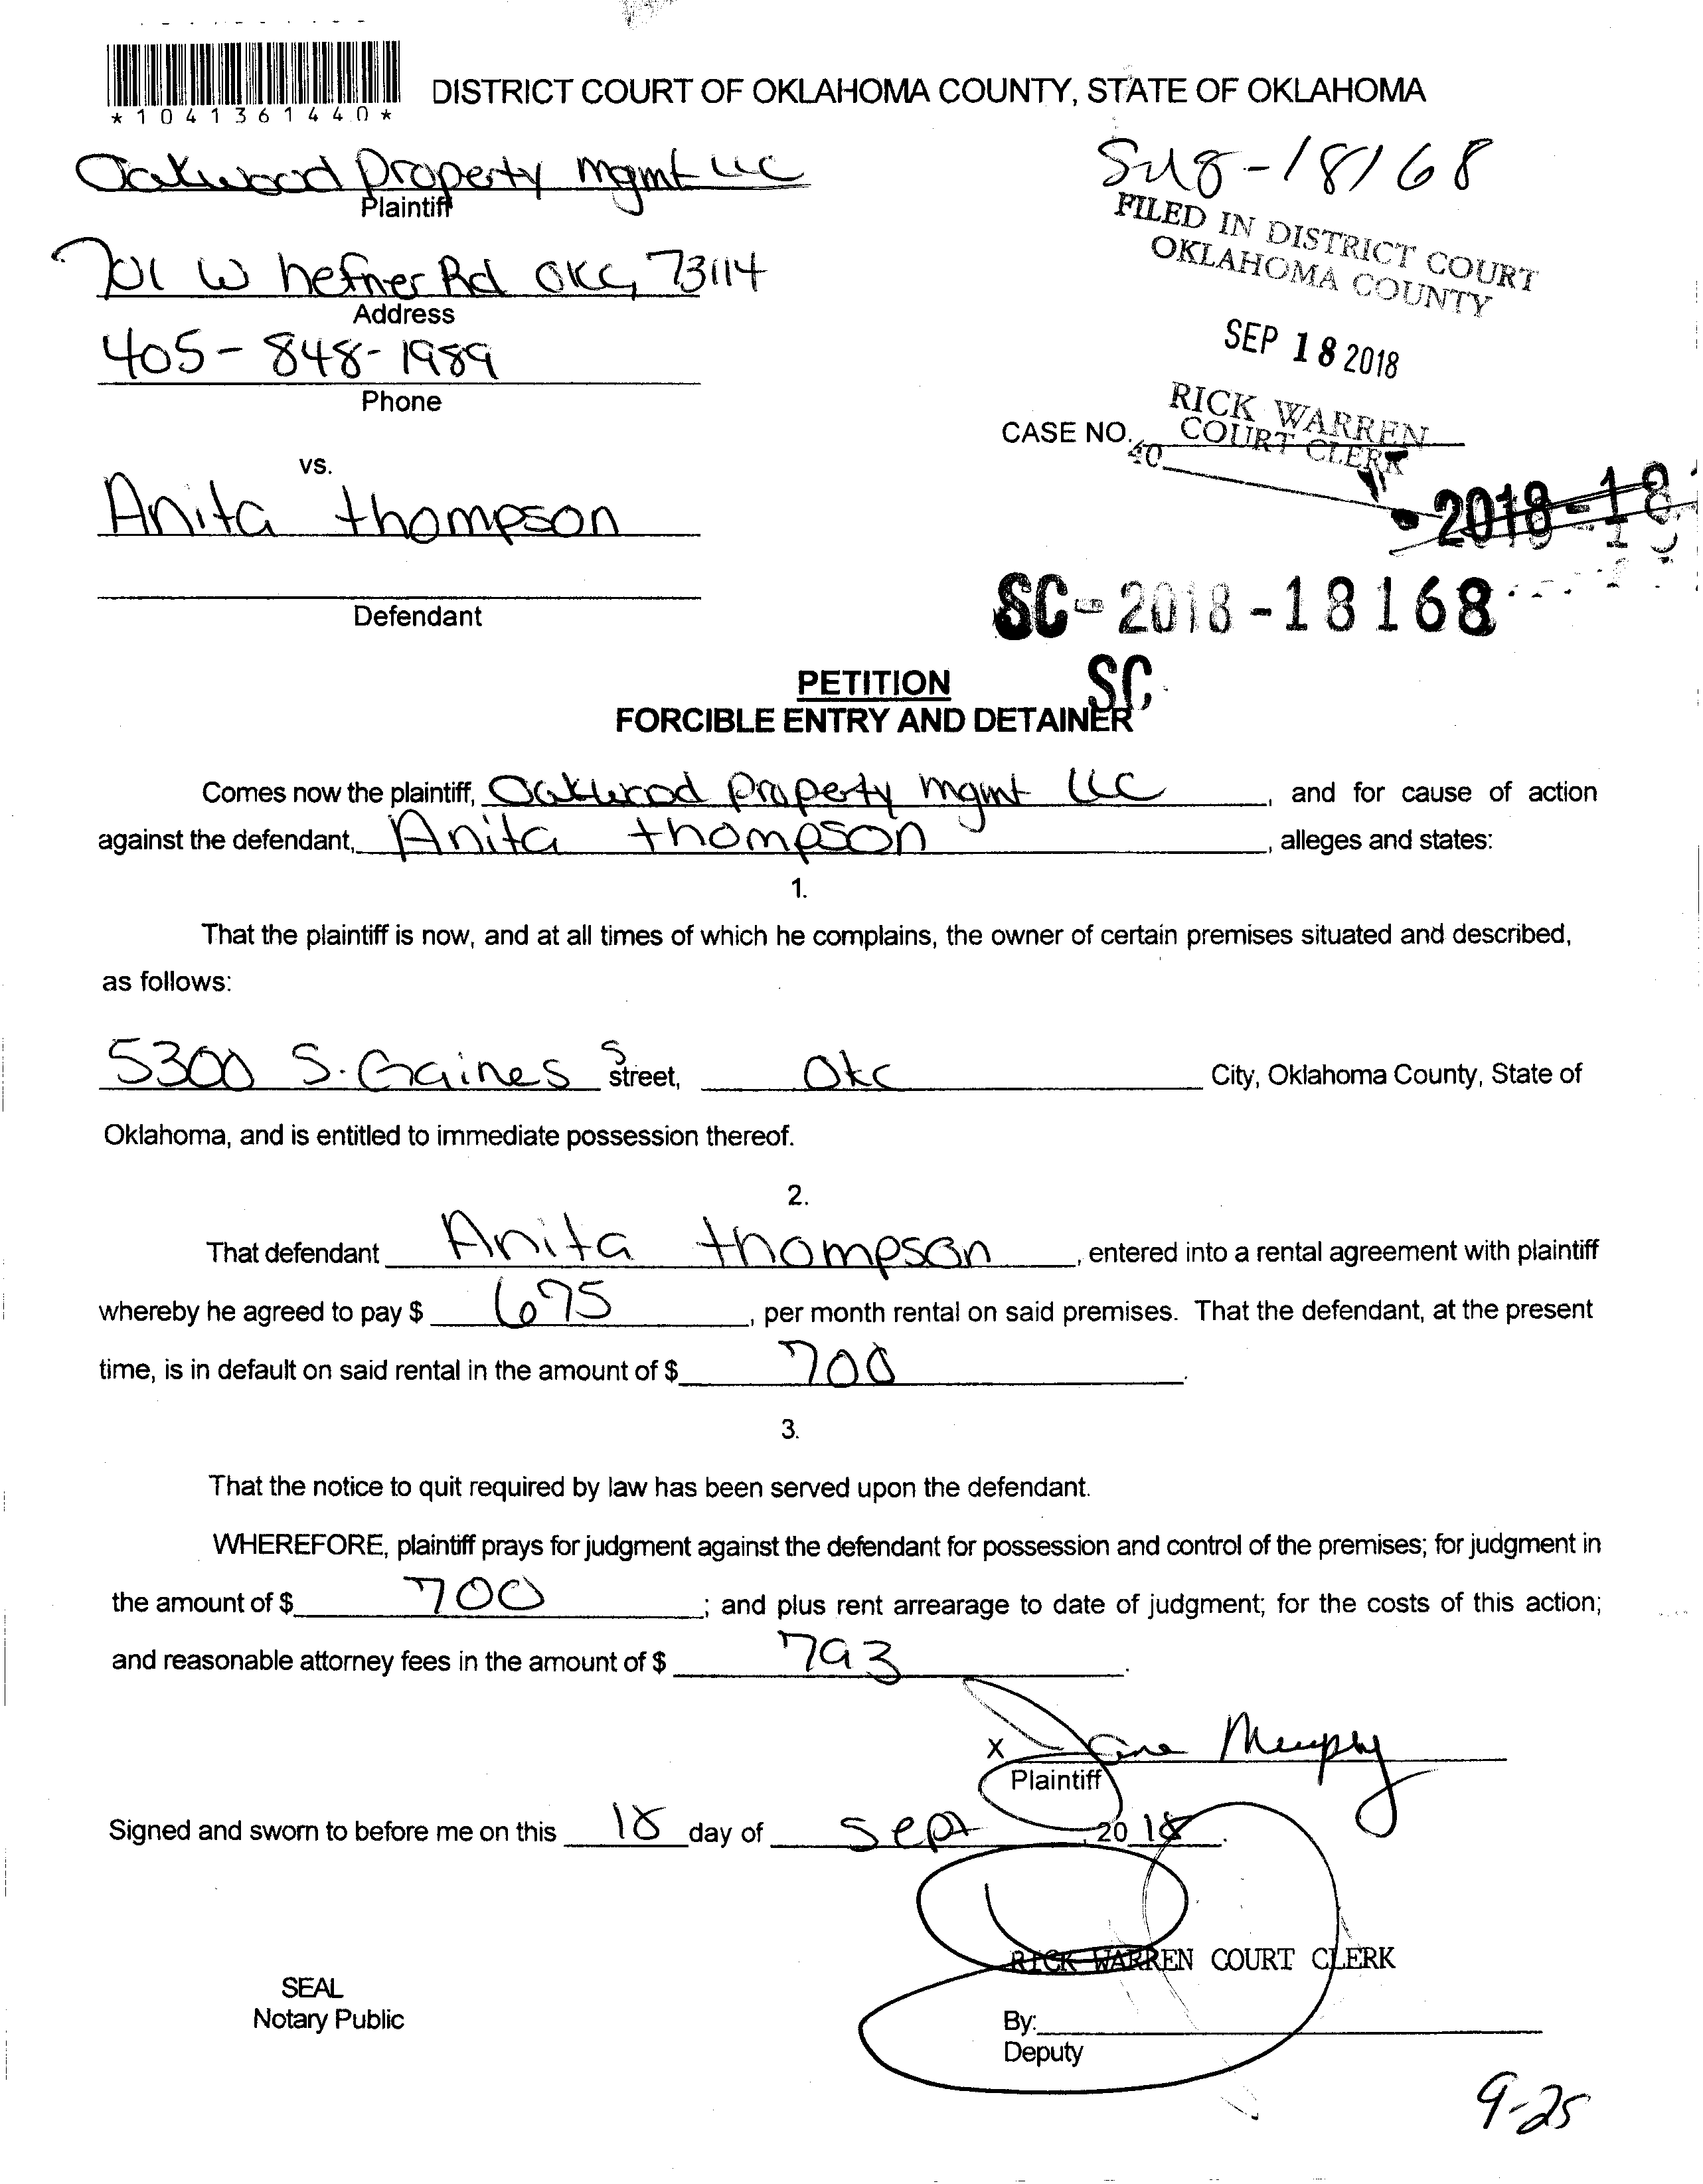 *1041361440*
DISTRICT COURT OF OKLAHOMA COUNTY, STATE OF OKLAHOMA
Oakwood Property Mgmt LLC
Plaintiff
701 W hefner Rd OKC, 73114
Address
405-848-1989
Phone
18168
FILED IN DISTRICT COURT
OKLAHOMA COUNTY
SEP 18 2018
RICK WARREN
COURT CLERK
CASE NO.
40
2018-18
vs.
Anita thompson
Defendant
SC-2018-18168
SC
PETITION
FORCIBLE ENTRY AND DETAINER
Comes now the plaintiff, Oakwood Property mgmt LLC, and for cause of action
against the defendant, Anita thompson, alleges and states:
1.
That the plaintiff is now, and at all times of which he complains, the owner of certain premises situated and described,
as follows:
5300 S. Gaines S street, Okc City, Oklahoma County, State of
Oklahoma, and is entitled to immediate possession thereof.
2.
That defendant Anita thompson, entered into a rental agreement with plaintiff
whereby he agreed to pay $ 675, per month rental on said premises. That the defendant, at the present
time, is in default on said rental in the amount of $ 700.
3.
That the notice to quit required by law has been served upon the defendant.
WHEREFORE, plaintiff prays for judgment against the defendant for possession and control of the premises; for judgment in
the amount of $ 700; and plus rent arrearage to date of judgment; for the costs of this action;
and reasonable attorney fees in the amount of $ 793.
X Murphy
Plaintiff
Signed and sworn to before me on this 18 day of Sept, 20 18.
RICK WARREN COURT CLERK
SEAL
Notary Public
By:
Deputy
9-25